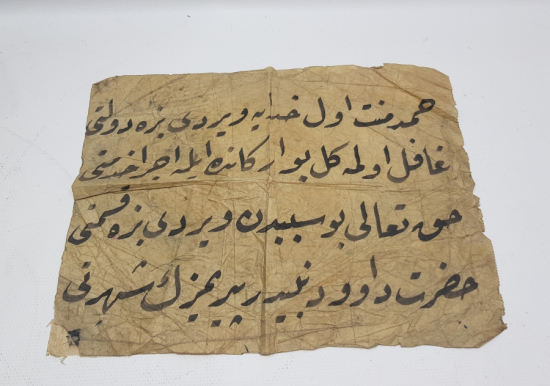 حمد منت اول خدایه ویردی بزه دولتی
غافل اولمه کل بو ارکانده ایله اجرا خدمتی
حق تعالی بو سببدن ویردی بزه قسمتی
حضرت داوود نبیدر پیریمزك شهرتی